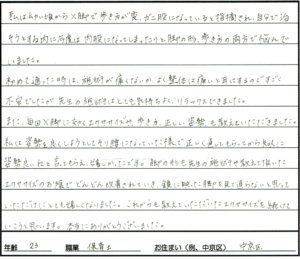 私は幼い頃からX脚で歩き方が変、ガニ股になっていると指摘され、自分で治
そうとすね内に今度は内股になってしまったりと脚の形、歩き方の両方で悩んで
いました。
初めて通った時は、施術が痛くないか、よく整体は痛いと耳にするのですごく
不安でしたが先生の施術はとても気持ちよく、リラックスできました。
また、毎回X脚に効くエクササイズや、歩き方、正しい姿勢も教えていただきました。
私は姿勢を良くしようとしてそり腰になっていた様で正しく直してもらってから
姿勢良いねと言ってもらえ、嬉しかったです。脚の形も先生の施術や教えて頂いた
エクササイズのお陰でどんどん改善されていき、鏡に映った脚を見違えて
いただけたことも嬉しくなりました。これからも教えていただいたエクササイズを続けて
いこうと思います。本当にありがとうございました。
年齢 23 職業 保育士 お住まい(例、中京区) 中京区